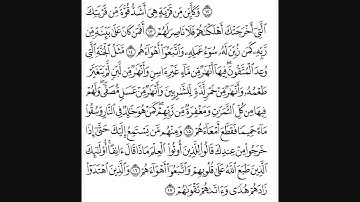 ﴿١٢﴾ وَكَأَيِّن مِّن قَرْيَةٍ هِيَ أَشَدُّ قُوَّةً مِّن قَرْيَتِكَ
ٱلَّتِيٓ أَخْرَجَتْكَ أَهْلَكْنَٰهُمْ فَلَا نَاصِرَ لَهُمْ ﴿١٣﴾ أَفَمَن كَانَ عَلَىٰ بَيِّنَةٍ مِّن
رَّبِّهِۦ كَمَن زُيِّنَ لَهُۥ سُوٓءُ عَمَلِهِۦ وَٱتَّبَعُوٓا۟ أَهْوَآءَهُم ﴿١٤﴾ مَّثَلُ ٱلْجَنَّةِ ٱلَّتِي
وُعِدَ ٱلْمُتَّقُونَ ۖ فِيهَآ أَنْهَٰرٌ مِّن مَّآءٍ غَيْرِ ءَاسِنٍ وَأَنْهَٰرٌ مِّن لَّبَنٍ لَّمْ يَتَغَيَّرْ
طَعْمُهُۥ وَأَنْهَٰرٌ مِّنْ خَمْرٍ لَّذَّةٍ لِّلشَّٰرِبِينَ وَأَنْهَٰرٌ مِّنْ عَسَلٍ مُّصَفًّى ۖ وَلَهُمْ
فِيهَا مِن كُلِّ ٱلثَّمَرَٰتِ وَمَغْفِرَةٌ مِّن رَّبِّهِمْ ۖ كَمَنْ هُوَ خَٰلِدٌ فِي ٱلنَّارِ وَسُقُوا۟
مَآءً حَمِيمًا فَقَطَّعَ أَمْعَآءَهُمْ ﴿١٥﴾ وَمِنْهُم مَّن يَسْتَمِعُ إِلَيْكَ حَتَّىٰٓ إِذَا
خَرَجُوا۟ مِنْ عِندِكَ قَالُوا۟ لِلَّذِينَ أُوتُوا۟ ٱلْعِلْمَ مَاذَا قَالَ ءَانِفًا ۚ أُو۟لَٰٓئِكَ
ٱلَّذِينَ طَبَعَ ٱللَّهُ عَلَىٰ قُلُوبِهِمْ وَٱتَّبَعُوٓا۟ أَهْوَآءَهُمْ ﴿١٦﴾ وَٱلَّذِينَ ٱهْتَدَوْا۟
زَادَهُمْ هُدًى وَءَاتَىٰهُمْ تَقْوَىٰهُمْ ﴿١٧﴾